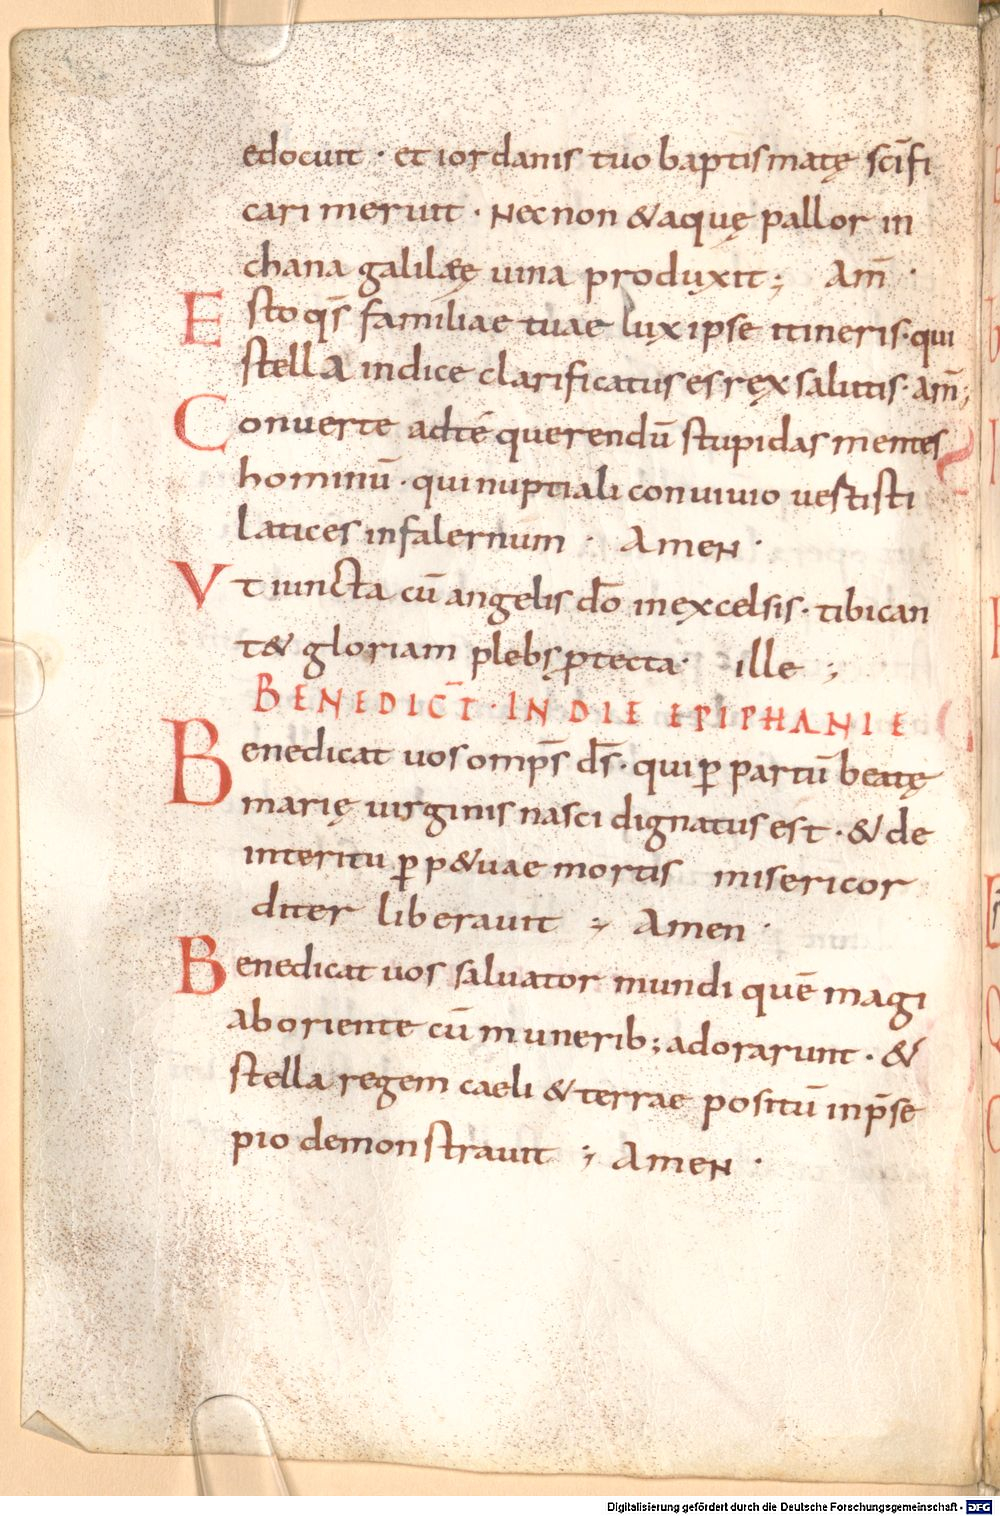 edocuit · et iordanis tuo baptismatę sc̄ifi
cari meruit · Necnon & aquę pallor in
chana galilęę uina produxit ; Am̄ ·
Esto qs̄ familiae tuae lux ipse itineris · qui
stella indice clarificatus es rex salutis · am̄ ;
Conuerte ad tē querendū stupidas mentes
hominū · qui nuptiali conuiuio uestisti
latices in falernum · Amen ·
Vt iuncta cū angelis dō in excelsis · tibi can
t& gloriam plebs ꝓtecta · ille ;
BENEDICT̄ · IN DIE EPIPHANIE
Benedicat uos omps̄ ds̄ · qui ꝑ partū beatę
marię uirginis nasci dignatus est · & de
interitu ꝑp&uae mortis misericor
diter liberauit ; Amen ·
Benedicat uos saluator mundi quē magi
ab oriente cū munerib; adorarunt · &
stella regem caeli & terrae positū in p̄se
pio demonstrauit ; Amen ·
Digitalisierung gefördert durch die Deutsche Forschungsgemeinschaft - DFG